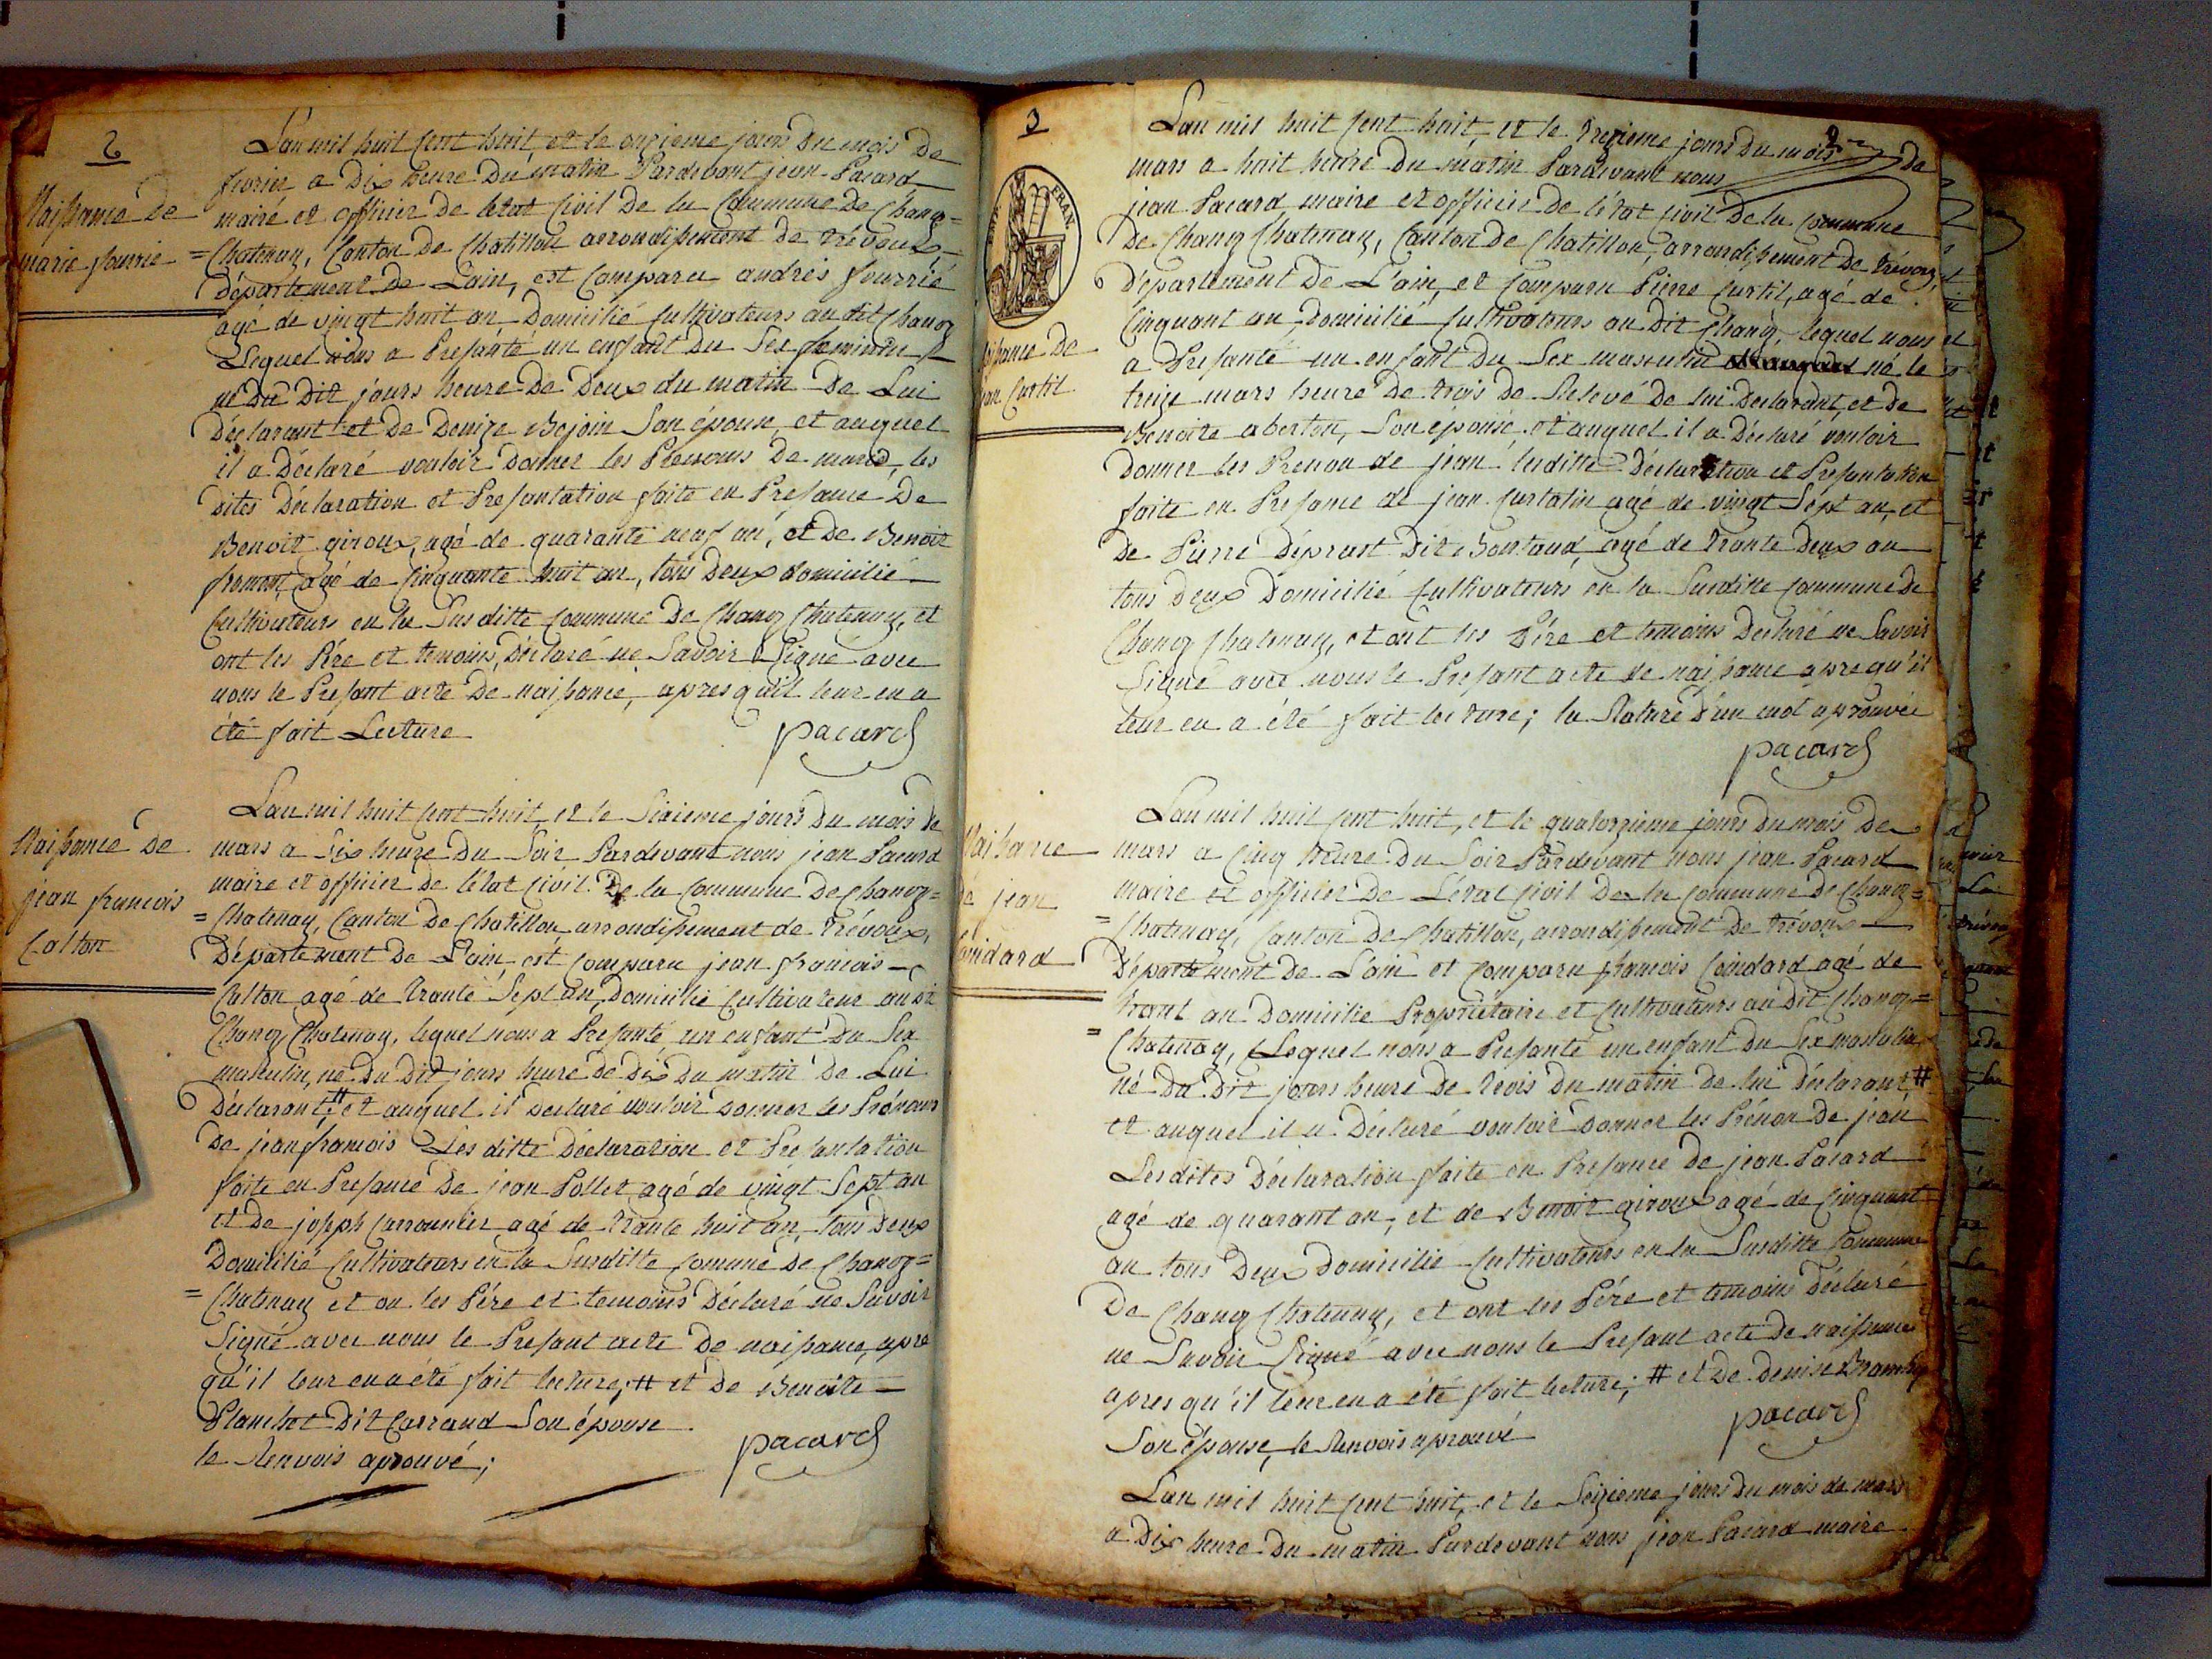 2
Naissance de
marie fourrié
L'an mil huit cent huit et le onzieme jours du mois de
fevrier a Dix heure Du matin Pardevant jean Pacard
mairé et officier de letat Civil De la Commune De Chanoz=
=Chatenay, Canton de Chatillon arrondissement de trévoux
département de Lain, est Comparu andrés fourrié
agé de vingt huit an Domicilié Cultivateurs au dit Chanoz
Lequel nous a Presanté un enfant du Sex feminin
né du Dit jours heure De Deux du matin De Lui
Déclarant et De Denize Bejoin Son épouse, et auquel
il a Déclaré vouloir Donner les Prenoms De marie, les
dites Déclaration et Presantation faite en Presance De
Benoit giroux, agé de quarante neuf an, et De Benoit
froment, agé de Cinquante huit an, tous Deux domicilié
Cultivateurs en la Sus ditte Commune De Chanoz Chatenay, et
ont les Pére et temoins, Déclaré ne Savoir Signé avec
nous le Presant acte De naissance, apres quil leur en a
été fait Lecture
pacard
Naissance De
jean francois
Colton
Lan mil huit cent huit et le Sixieme jours Du mois de
mars a Six heure Du Soir Pardevant nous jean Pacard
maire et officier de létat Civil De la Commune De Chanoz=
=Chatenay, Canton De Chatillon arrondissement de trévoux,
Département De Lain, est Comparu jean francois
Colton agé de trante Sept an, Domicilié Cultivateur audit
Chanoz Chatenay, lequel nous a Presanté un enfant Du Sex
masculin, né Du Dit jours heure de dix Du matin De Lui
Déclarant,# et auquel il Declaré vouloir Donner les Prénoms
De jean francois Les ditte Déclaration et Presantation
faite en Presance De jean Pollet, agé de vingt Sept an
et De joseph Carrounier agé de trante huit an, tous Deux
Domicilié Cultivateurs en la Susditte Comune De Chanoz=
=Chatenay et on les Pére et temoins Déclaré ne Savoir
Signé avec nous le Presant acte De naissance, apre
qu'il leur en a été fait lecture,# et De Benoite
Planchet Dit Carraud Son épouse
le Renvois aprouvé;
pacard
3
FRAN.
Naissance De
jean Curtil
Lan mil huit cent huit, et le treizieme jours Du mois De
mars a huit heure Du matin Pardevant nous
jean Pacard maire et officier de létat civil De la Commune
De Chanoz Chatenay, Canton de Chatillon, arrondissement De trévoux,
Département De L'ain, et Comparu Pierre Curtil, agé de
Cinquant an Domicilié Cultivateurs au Dit Chanoz, lequel nous
a Presanté un enfant Du Sex masculin né le
treize mars heure De trois De Relevé De lui Declarant, et De
Benoite aberton, Son épouse et auquel il a Déclaré vouloir
Donner les Prenon de jean lesditte Déclaration et Presantation
faite en Presance de jean Curtalin agé de vingt Sept an, et
De Pierre Dépravt Dit Bontoud, agé de trante Deux an
tous deux Domicilié Cultivateurs en la Susditte Commune De
Chanoz Chatenay, et ont les Pére et temoins Declaré ne Savoir
Signé avec nous le Presant acte de naissance apre qu'il
leur en a été fait lecture; la Rature d'un mot aprouvée
pacard
Naissance
de jean
Coindard
Lan mil huit cent huit, et le quatorzieme jours Du mois De
mars a Cinq heure Du Soir Pardevant nous jean Pacard
maire et officier De Létat Civil De la Commune De Chanoz=
=Chatenay, Canton De Chatillon, arrondissement De trévoux
Département De L'ain et Comparu francois Coindard agé de
trant an Domicilie Propriétaire et Cultivateurs au Dit Chanoz=
=Chatenay, Lequel nous a Presanté un enfant Du Sex masculin,
né Du Dit jours heure De trois Du matin De lui Déclarant#
et auquel il a Déclaré vouloir Donner les Prénon De jean
Lesdites Déclaration faite en Presance De jean Pacard
agé de quarant an, et de Benoit giroux agé de Cinquant
an tous Deux Domicilié Cultivateurs en la Susditte Commune
De Chanoz Chatenay, et ont les Pére et temoins déclaré
ne Savoir Signé avec nous le Presant acte De naissance
apres qu'il leur en a été fait lecture; # et De Denise
Son épouse, le Renvois aprouvé
pacard
Lan mil huit cent huit, et le Seizieme jours Du mois de mars
a Dix heure Du matin Pardevant nous jean Pacard maire